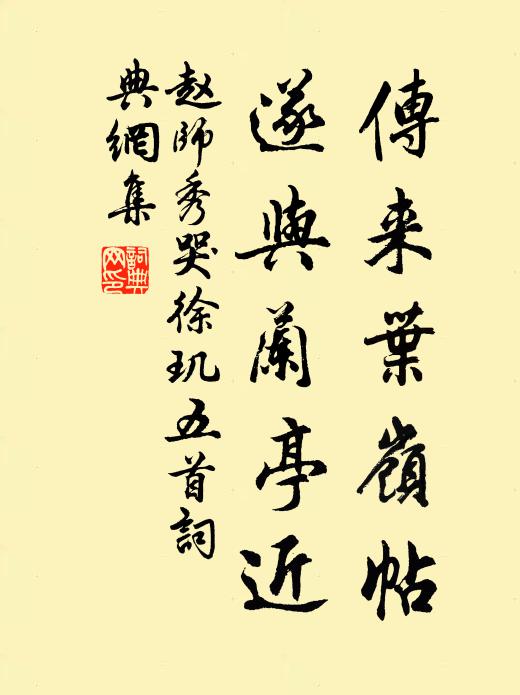 傳来葉嶺帖
遂與蘭亭近
赵師秀哭徐玑五首詞
典網集
詞典
网印